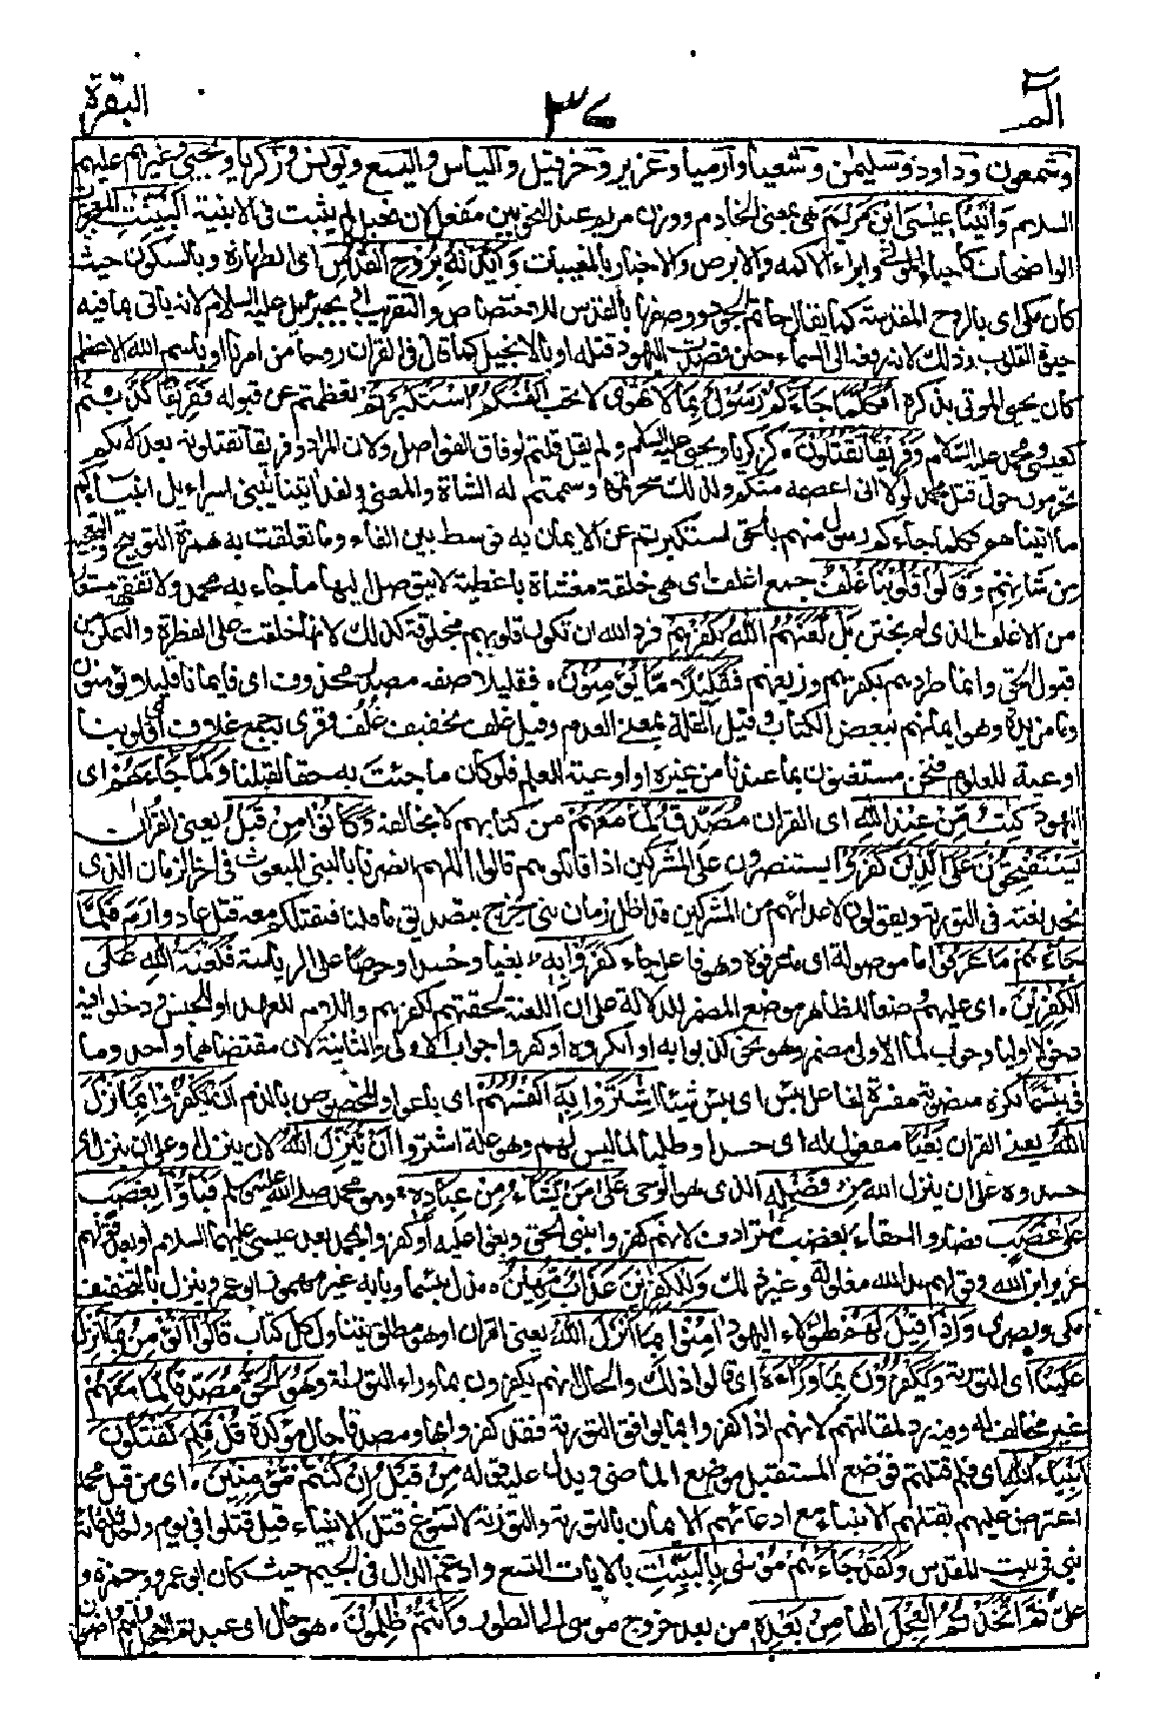 الم
٣٧
البقرة
وشمعون وداود وسليمن وشعيا وارميا وعزير وحزقيل والياس واليسع ويونس وزكريا ويحيى وغيرهم عليهم
السلام وَاٰتَيْنَا عِيْسَى ابْنَ مَرْيَمَ هي بمعنى الخادم ووزن مريم عند النحويين مفعل لان فعيل لم يثبت في الابنية الْبَيِّنٰتِ المعجزات
الواضحات كاحياء الموتى وابراء الاكمه والابرص والاخبار بالمغيبات وَاَيَّدْنٰهُ بِرُوْحِ الْقُدُسِ اى الطهارة وبالسكون حيث
كان مكى اى بالروح المقدسة كما يقال حاتم الجود ووصفها بالقدس للاختصاص والتقريب اى بجبرئيل عليه السلام لانه ياتى بما فيه
حيوة القلب وذلك لانه رفعه الى السماء حين قصدت اليهود قتله او بالانجيل كما قال في القران روحا من امرنا او باسم الله الاعظم
كان يحيى الموتى بذكره اَفَكُلَّمَا جَاءَكُمْ رَسُوْلٌ بِمَا لَا تَهْوٰى لا تحب اَنْفُسُكُمُ اسْتَكْبَرْتُمْ تعظمتم عن قبوله فَفَرِيْقًا كَذَّبْتُمْ
كعيسى ومحمد عليهما السلام وَفَرِيْقًا تَقْتُلُوْنَ كزكريا ويحيى عليهما السلام ولم يقل قتلتم لوفاق الفواصل ولان المراد وفريقا تقتلونه بعد لانكم
تحومون حول قتل محمد لولا انى اعصمه منكم ولذلك سحرتموه وسممتم له الشاة والمعنى ولقد اتينا يبنى اسراءيل انبياءكم
ما اتيناهم فكلما جاءكم رسول منهم بالحق استكبرتم عن الايمان به فوسط بين الفاء وما تعلقت به همزة التوبيخ والتعجيب
من شانهم وَقَالُوْا قُلُوْبُنَا غُلْفٌ جمع اغلف اى هى خلقة مغشاة باغطية لا يتوصل اليها ما جاء به محمد ولا تفقهه مستعار
من الاغلف الذى لم يختن بَلْ لَّعَنَهُمُ اللّٰهُ بِكُفْرِهِمْ فرد الله ان تكون قلوبهم مخلوقة كذلك لانها خلقت على الفطرة والتمكن من
قبول الحق وانما طردهم بكفرهم وزيغهم فَقَلِيْلًا مَّا يُؤْمِنُوْنَ فقليلا صفة مصدر محذوف اى فايمانا قليلا يؤمنون
وما مزيدة وهو ايمانهم ببعض الكتاب وقيل القلة بمعنى العدم وقيل غلف تخفيف غلف وقرئ به جمع غلاف اى قلوبنا
اوعية للعلوم فنحن مستغنون بما عندنا من غيره او اوعية للعلم فلو كان ما جئت به حقا لقبلنا وَلَمَّا جَاءَهُمْ اى
اليهود كِتٰبٌ مِّنْ عِنْدِ اللّٰهِ اى القران مُصَدِّقٌ لِّمَا مَعَهُمْ من كتابهم لا يخالفه وَكَانُوْا مِنْ قَبْلُ يعنى القران
يَسْتَفْتِحُوْنَ عَلَى الَّذِيْنَ كَفَرُوْا يستنصرون على المشركين اذا قاتلوهم قالوا اللهم انصرنا بالنبى المبعوث في اخر الزمان الذى
نجد نعته في التورىة ويقولون لاعدائهم من المشركين قد اظل زمان نبى يخرج بتصديق ما قلنا فنقتلكم معه قتل عاد وارم فَلَمَّا
جَاءَهُمْ مَّا عَرَفُوْا ما موصولة اى ما عرفوه وهو فاعل جاء كَفَرُوْا بِهٖ بغيا وحسدا وحرصا على الرياسة فَلَعْنَةُ اللّٰهِ عَلَى
الْكٰفِرِيْنَ اى عليهم وضعا للظاهر موضع المضمر للدلالة على ان اللعنة لحقتهم لكفرهم واللام للعهد او للجنس ودخلوا فيه
دخولا اوليا وجواب لما الاولى مضمر وهو نحو كذبوا به او انكروه او كفروا جواب الاولى والثانية لان مقتضاهما واحد وما
في بِئْسَمَا نكرة منصوبة مفسرة لفاعل بئس اى بئس شيئا اشْتَرَوْا بِهٖ اَنْفُسَهُمْ اى باعوا والمخصوص بالذم اَنْ يَّكْفُرُوْا بِمَا اَنْزَلَ
اللّٰهُ يعنى القران بَغْيًا مفعول له اى حسدا وطلبا لما ليس لهم وهو علة اشتروا اَنْ يُّنَزِّلَ اللّٰهُ لان ينزل او على ان ينزل اى
حسدوه على ان ينزل الله مِنْ فَضْلِهٖ الذى هو الوحى عَلٰى مَنْ يَّشَاءُ مِنْ عِبَادِهٖ وهو محمد صلى الله عليه وسلم فَبَاءُوْ بِغَضَبٍ
عَلٰى غَضَبٍ فصاروا احقاء بغضب مترادف لانهم كفروا بنبى الحق وبغوا عليه او كفروا بمحمد بعد عيسى عليهما السلام او بعد قولهم
عزير ابن الله وقولهم يد الله مغلولة وغير ذلك وَلِلْكٰفِرِيْنَ عَذَابٌ مُّهِيْنٌ مذل بئسما وبابه غير مهموز ابو عمرو وينزل بالتخفيف
مكى وبصرى وَاِذَا قِيْلَ لَهُمْ لهؤلاء اليهود اٰمِنُوْا بِمَا اَنْزَلَ اللّٰهُ يعنى القران او هو مطلق يتناول كل كتاب قَالُوْا نُؤْمِنُ بِمَا اُنْزِلَ
عَلَيْنَا اى التورىة وَيَكْفُرُوْنَ بِمَا وَرَاءَهٗ اى قالوا ذلك والحال انهم يكفرون بما وراء التورىة وَهُوَ الْحَقُّ مُصَدِّقًا لِّمَا مَعَهُمْ
غير مخالف له وفيه رد لمقالتهم لانهم اذا كفروا بما يوافق التورىة فقد كفروا بها ومصدقا حال مؤكدة قُلْ فَلِمَ تَقْتُلُوْنَ
اَنْبِيَاءَ اللّٰهِ اى فلم قتلتم فوضع المستقبل موضع الماضى ويدل عليه قوله مِنْ قَبْلُ اِنْ كُنْتُمْ مُّؤْمِنِيْنَ اى من قبل محمد
اعترض عليهم بقتلهم الانبياء مع ادعائهم الايمان بالتورىة والتورىة لا تسوغ قتل الانبياء قيل قتلوا في يوم واحد ثلثمائة
نبى في بيت المقدس وَلَقَدْ جَاءَكُمْ مُّوْسٰى بِالْبَيِّنٰتِ بالايات التسع وادغم الدال في الجيم حيث كان ابو عمرو وحمزة و
على ثُمَّ اتَّخَذْتُمُ الْعِجْلَ الها مِنْ بَعْدِهٖ من بعد خروج موسى الى الطور وَاَنْتُمْ ظٰلِمُوْنَ هو حال اى عبدتم العجل وانتم واضعون